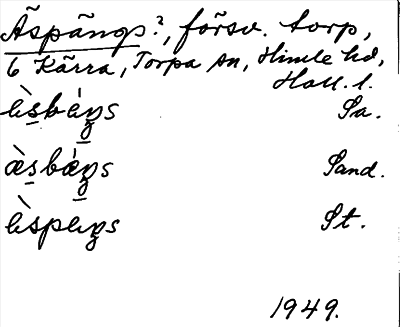 Äspängs?, försv. torp,
6 Kärra, Torpa sn, Himle hd,
Hall. l.
Sa.
Sand.
St.
1949.